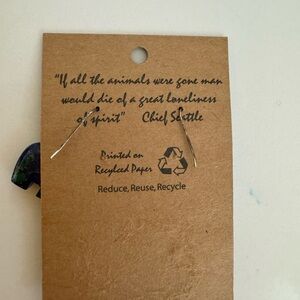 "If all the animals were gone man
would die of a great loneliness
of spirit" Chief Seattle
Printed on
Recylced Paper
Reduce, Reuse, Recycle